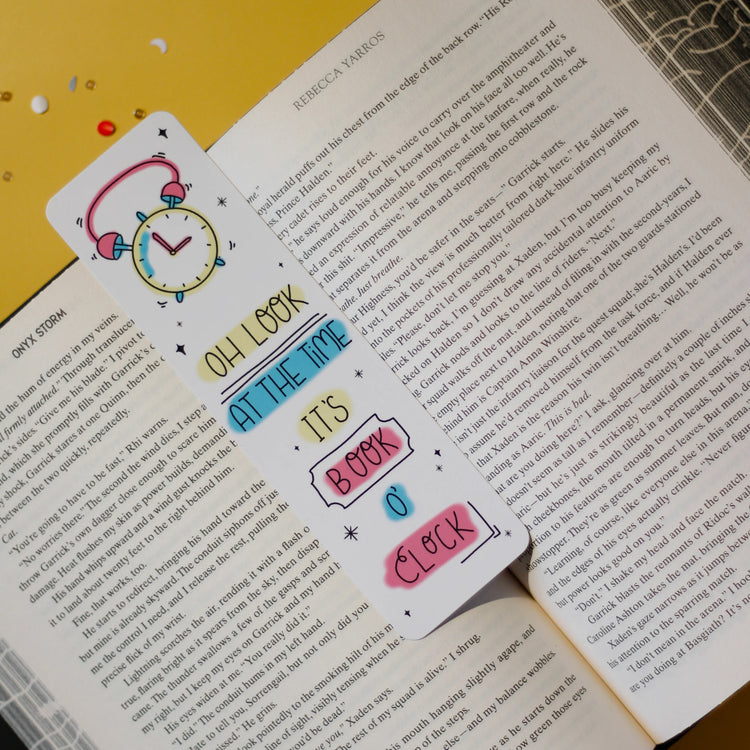 OH LOOK
AT THE TIME
IT'S
BOOK
O'
CLOCK
ONYX STORM
the hum of energy in my veins.
firmly attached." Through translucent
sides. "Give me his blade." I pivot
which she promptly fills with Garrick's
shock. Garrick stares at one. Quinn, then the
between the two quickly, repeatedly.
You're going to have to be fast," Rhi warns.
"No worries there." The second the wind dies, I step
throw Garrick's own dagger close enough to scare him
damage. Heat flushes my skin as power builds, demand
His hand whips upward and a wind gust knocks the
it to land about twenty feet to the right behind him.
Cat.
Fine, that works, too.
He starts to redirect, bringing his hand toward the
but mine is already skyward. The conduit siphons off jus
me the control I need, and I release the rest, pulling the
precise flick of my wrist.
Lightning scorches the air, rending it with a flash o
true, flaring bright as it spears from the sky, then disap
came. The thunder swallows a few of the gasps and scr
my right, but I keep my eyes on Garrick and my hand l
His eyes widen at me. "You really did it."
"I did." The conduit hums in my left hand.
hate to tell you, Sorrengail, but not only did you
missed." He grins.
look pointedly to the smoking hilt of his
line of sight, visibly tensing when he
you'd be dead."
you," Xaden says.
rest of my squad is alive." I shrug.
his mouth hanging slightly agape, and
of the steps.
else—and my balance wobbles.
as he starts down the
low green eyes
REBECCA YARROS
royal herald puffs out his chest from the edge of the back row. "His R
Prince Halden."
ery cadet rises to their feet.
he says loud enough for his voice to carry over the amphitheater and
downward with his hands. I know that look on his face all too well. He's
ed an expression of relatable annoyance at the fanfare, when really, he
this shit. "Impressive," he tells me, passing the first row and the rock
separates it from the arena and stepping onto cobblestone.
the. Just breathe.
Highness, you'd be safer in the seats—" Garrick starts.
yet. I think the view is much better from right here." He slides his
to the pockets of his professionally tailored dark-blue infantry uniform
"Please, don't let me stop you."
rick looks back, I'm guessing at Xaden, but I'm too busy keeping my
cked on Halden so I don't draw any accidental attention to Aaric by
Garrick nods and looks to the line of riders. "Next."
squad walks off the mat, and instead of filing in with the second-years, I
empty place next to Halden, noting that one of the two guards stationed
hind him is Captain Anna Winshire.
isn't just the infantry liaison for the quest squad; she's Halden's. I'd been
assume he'd removed himself from the task force, and if Halden ever
that Xaden is the reason his twin isn't breathing… Well, he won't be as
nding as Aaric. This is bad.
at are you doing here?" I ask, glancing over at him.
doesn't seem as tall as I remember—definitely a couple of inches
aric—but he's just as strikingly beautiful as the last time
cheekbones, the mouth tilted in a permanent smirk, and
ention to his features are enough to turn heads, but his e
showstopper. They're as green as summer leaves. But man,
"Learning, of course, like everyone else in this arena
and the edges of his eyes actually crinkle. "Never figu
but power looks good on you."
"Don't." I shake my head and face the match
Garrick blasts the remnants of Ridoc's w
Caroline Ashton takes the mat, bringing the
Xaden's gaze narrows as it jumps betwe
his attention to the sparring match.
"I don't mean in the arena." I he
are you doing at Basgiath? It's